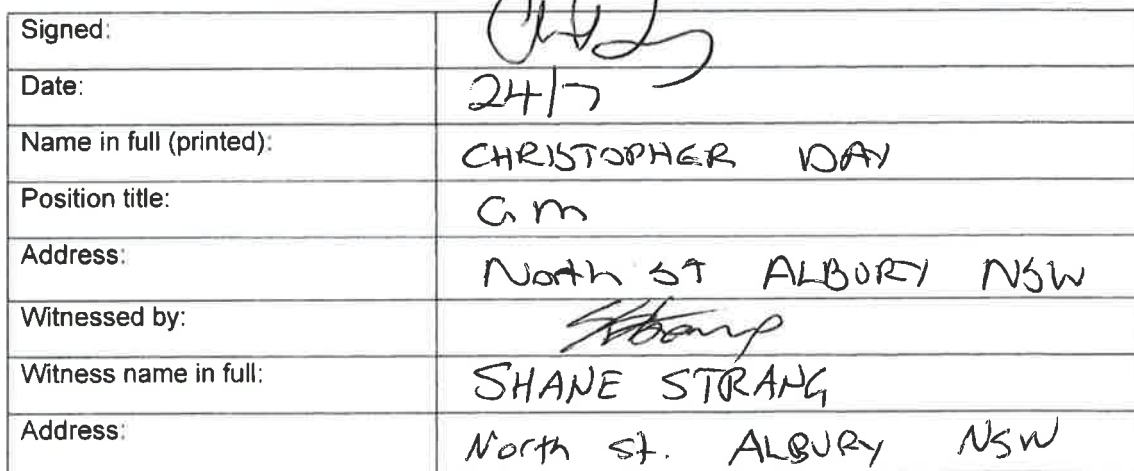 Signed:
Date: 24/7
Name in full (printed): CHRISTOPHER DAY
Position title: GM
Address: North ST ALBURY NSW
Witnessed by:
Witness name in full: SHANE STRANG
Address: North St. ALBURY NSW